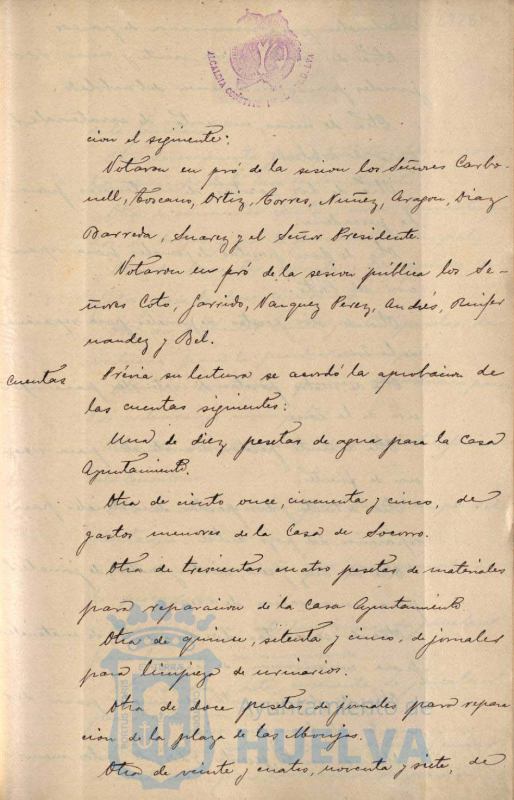 ALCALDIA CONSTIT
cion el siguiente:
Votaron en pró de la sesion los Señores Carbo-
nell, Toscano, Ortiz, Torres, Nuñez, Aragon, Diaz
Barreda, Suarez y el Señor Presidente.
Votaron en pró de la sesion pública los Se-
ñores Coto, Garrido, Vazquez Perez, Andrés, Rinfer
nandez y Bel.
Cuentas Prévia su lectura se acordó la aprobacion de
las cuentas siguientes:
Una de diez pesetas de agua para la Casa
Ayuntamiento.
Otra de ciento once, cincuenta y cinco, de
gastos menores de la Casa de Socorro.
Otra de trescientas cuatro pesetas de materiales
para reparacion de la Casa Ayuntamiento.
Otra de quince, setenta y cinco, de jornales
para limpieza de urinarios.
Otra de doce pesetas de jornales para repara
cion de la plaza de las Monjas.
Otra de veinte y cuatro, noventa y siete, de
Ayuntamiento de
HUELVA